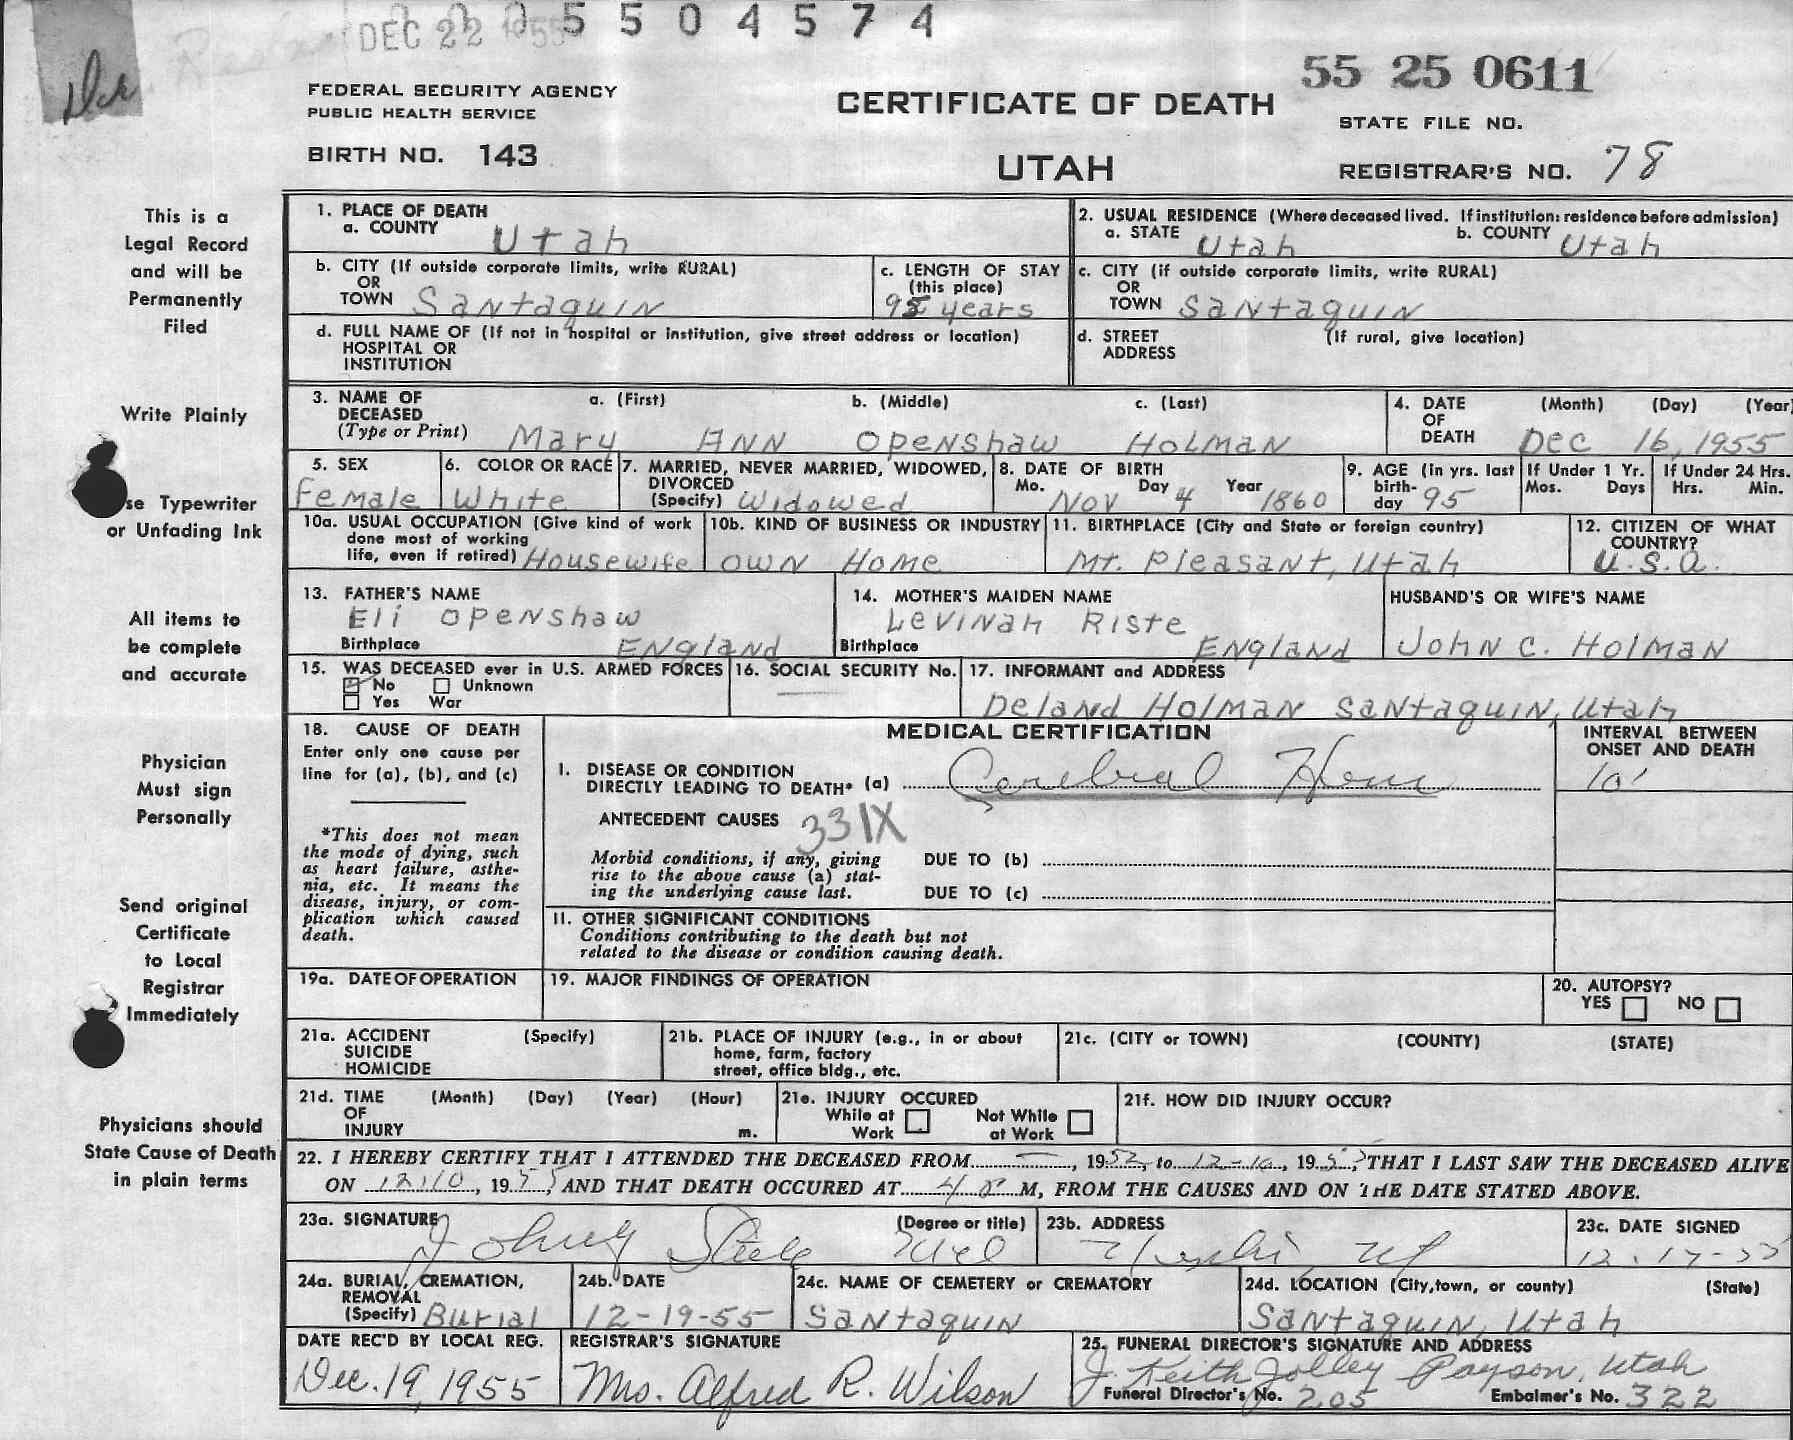 DEC 22 1955 5504574
Dck
55 25 0611
FEDERAL SECURITY AGENCY
PUBLIC HEALTH SERVICE
CERTIFICATE OF DEATH
STATE FILE NO.
BIRTH NO. 143
UTAH
REGISTRAR'S NO. 78
This is a
Legal Record
and will be
Permanently
Filed
Write Plainly
se Typewriter
or Unfading Ink
All items to
be complete
and accurate
Physician
Must sign
Personally
Send original
Certificate
to Local
Registrar
Immediately
Physicians should
State Cause of Death
in plain terms
1. PLACE OF DEATH
a. COUNTY Utah
2. USUAL RESIDENCE (Where deceased lived. If institution: residence before admission)
a. STATE Utah b. COUNTY Utah
b. CITY (If outside corporate limits, write RURAL)
OR
TOWN Santaquin
c. LENGTH OF STAY
(this place)
95 years
c. CITY (if outside corporate limits, write RURAL)
OR
TOWN Santaquin
d. FULL NAME OF (If not in hospital or institution, give street address or location)
HOSPITAL OR
INSTITUTION
d. STREET (If rural, give location)
ADDRESS
3. NAME OF a. (First) b. (Middle) c. (Last)
DECEASED
(Type or Print) Mary Ann Openshaw Holman
4. DATE (Month) (Day) (Year)
OF
DEATH Dec 16, 1955
5. SEX
Female
6. COLOR OR RACE
White
7. MARRIED, NEVER MARRIED, WIDOWED,
DIVORCED
(Specify) Widowed
8. DATE OF BIRTH
Mo. Day Year
Nov 4 1860
9. AGE (in yrs. last
birth-
day 95
If Under 1 Yr.
Mos. Days
If Under 24 Hrs.
Hrs. Min.
10a. USUAL OCCUPATION (Give kind of work
done most of working
life, even if retired) Housewife
10b. KIND OF BUSINESS OR INDUSTRY
Own Home
11. BIRTHPLACE (City and State or foreign country)
Mt. Pleasant, Utah
12. CITIZEN OF WHAT
COUNTRY?
U.S.A.
13. FATHER'S NAME
Eli Openshaw
Birthplace England
14. MOTHER'S MAIDEN NAME
Levinah Riste
Birthplace England
HUSBAND'S OR WIFE'S NAME
John C. Holman
15. WAS DECEASED ever in U.S. ARMED FORCES
No Unknown
Yes War
16. SOCIAL SECURITY No.
17. INFORMANT and ADDRESS
Deland Holman Santaquin, Utah
18. CAUSE OF DEATH
Enter only one cause per
line for (a), (b), and (c)
*This does not mean
the mode of dying, such
as heart failure, asthe-
nia, etc. It means the
disease, injury, or com-
plication which caused
death.
MEDICAL CERTIFICATION
INTERVAL BETWEEN
ONSET AND DEATH
I. DISEASE OR CONDITION
DIRECTLY LEADING TO DEATH* (a) Cerebral Hem
10'
ANTECEDENT CAUSES 331X
Morbid conditions, if any, giving
rise to the above cause (a) stat-
ing the underlying cause last.
DUE TO (b)
DUE TO (c)
II. OTHER SIGNIFICANT CONDITIONS
Conditions contributing to the death but not
related to the disease or condition causing death.
19a. DATE OF OPERATION
19. MAJOR FINDINGS OF OPERATION
20. AUTOPSY?
YES NO
21a. ACCIDENT (Specify)
SUICIDE
HOMICIDE
21b. PLACE OF INJURY (e.g., in or about
home, farm, factory
street, office bldg., etc.
21c. (CITY or TOWN) (COUNTY) (STATE)
21d. TIME (Month) (Day) (Year) (Hour)
OF
INJURY m.
21e. INJURY OCCURED
While at Work Not While at Work
21f. HOW DID INJURY OCCUR?
22. I HEREBY CERTIFY THAT I ATTENDED THE DECEASED FROM , 1952, to 12-10, 1955, THAT I LAST SAW THE DECEASED ALIVE
ON 12/10, 1955, AND THAT DEATH OCCURED AT 4 M, FROM THE CAUSES AND ON THE DATE STATED ABOVE.
23a. SIGNATURE (Degree or title)
Steele
23b. ADDRESS
23c. DATE SIGNED
12-17-55
24a. BURIAL, CREMATION,
REMOVAL
(Specify) Burial
24b. DATE
12-19-55
24c. NAME OF CEMETERY or CREMATORY
Santaquin
24d. LOCATION (City, town, or county) (State)
Santaquin, Utah
DATE REC'D BY LOCAL REG.
Dec. 19, 1955
REGISTRAR'S SIGNATURE
Mrs. Alfred R. Wilson
25. FUNERAL DIRECTOR'S SIGNATURE AND ADDRESS
J. Keith Jolley Payson, Utah
Funeral Director's No. 205 Embalmer's No. 322